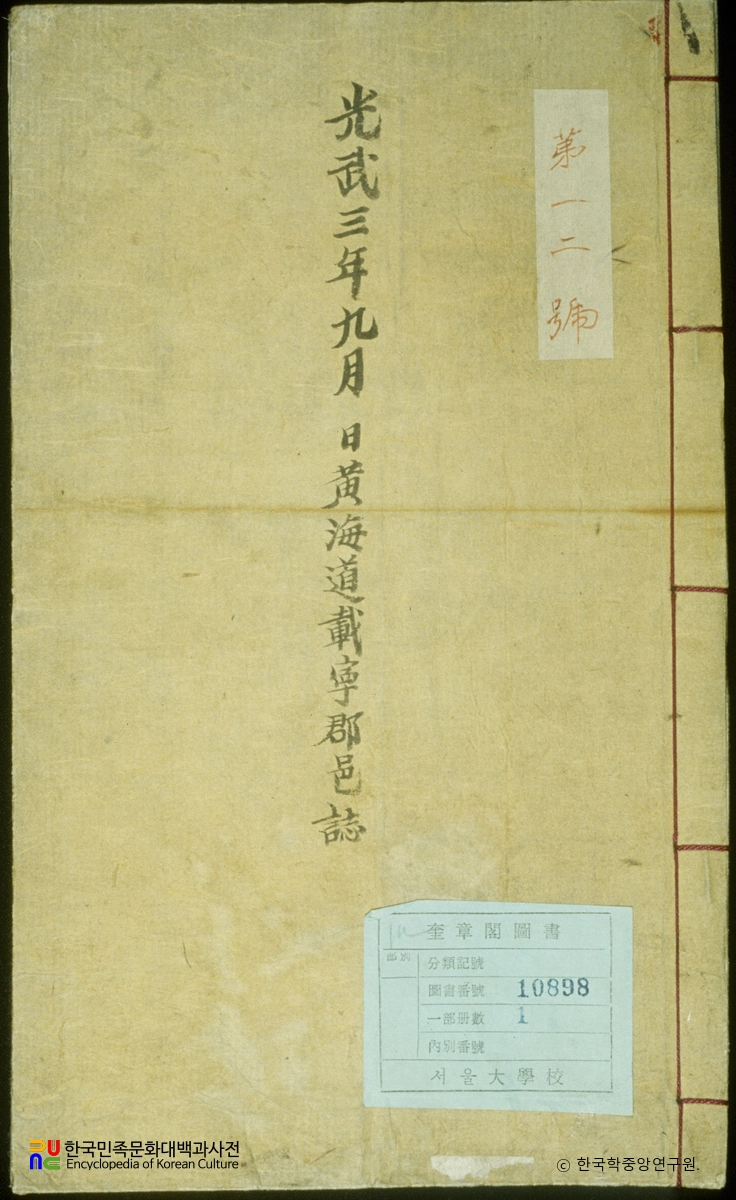 第一二號
光武三年九月 日黃海道載寧郡邑誌
奎章閣圖書
部別
分類記號
圖書番號 10898
一部册數 1
內別番號
서울大學校
한국민족문화대백과사전
Encyclopedia of Korean Culture
© 한국학중앙연구원.